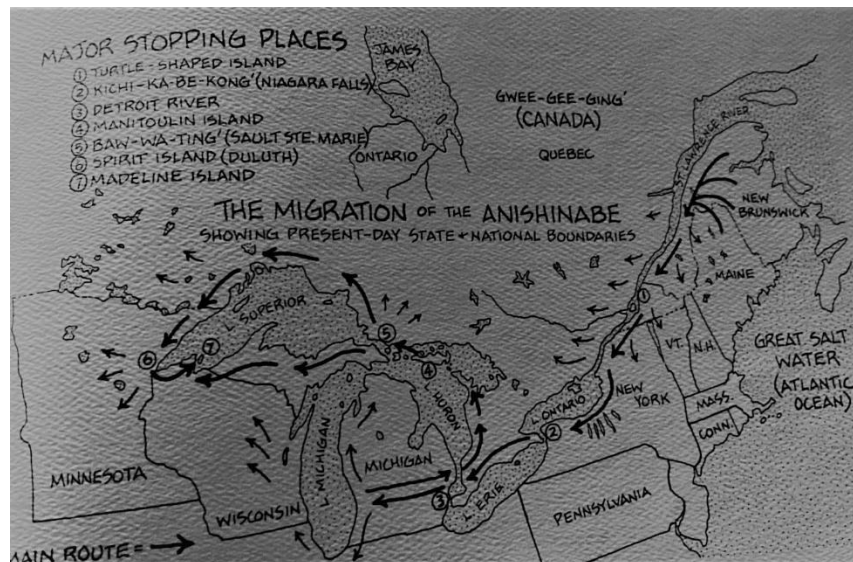 MAJOR STOPPING PLACES
① TURTLE-SHAPED ISLAND
② KICHI-KA-BE-KONG' (NIAGARA FALLS)
③ DETROIT RIVER
④ MANITOULIN ISLAND
⑤ BAW-WA-TING' (SAULT STE. MARIE)
⑥ SPIRIT ISLAND (DULUTH)
⑦ MADELINE ISLAND
JAMES
BAY
ONTARIO
GWEE-GEE-GING'
(CANADA)
QUEBEC
ST. LAWRENCE RIVER
THE MIGRATION OF THE ANISHINABE
SHOWING PRESENT-DAY STATE + NATIONAL BOUNDARIES
NEW
BRUNSWICK
MAINE
①
L. SUPERIOR
⑤
④
⑥
⑦
VT.
N.H.
GREAT SALT
WATER
(ATLANTIC
OCEAN)
HURON
L. ONTARIO
NEW
YORK
MASS.
CONN.
②
MINNESOTA
WISCONSIN
L. MICHIGAN
MICHIGAN
③
L. ERIE
PENNSYLVANIA
MAIN ROUTE =